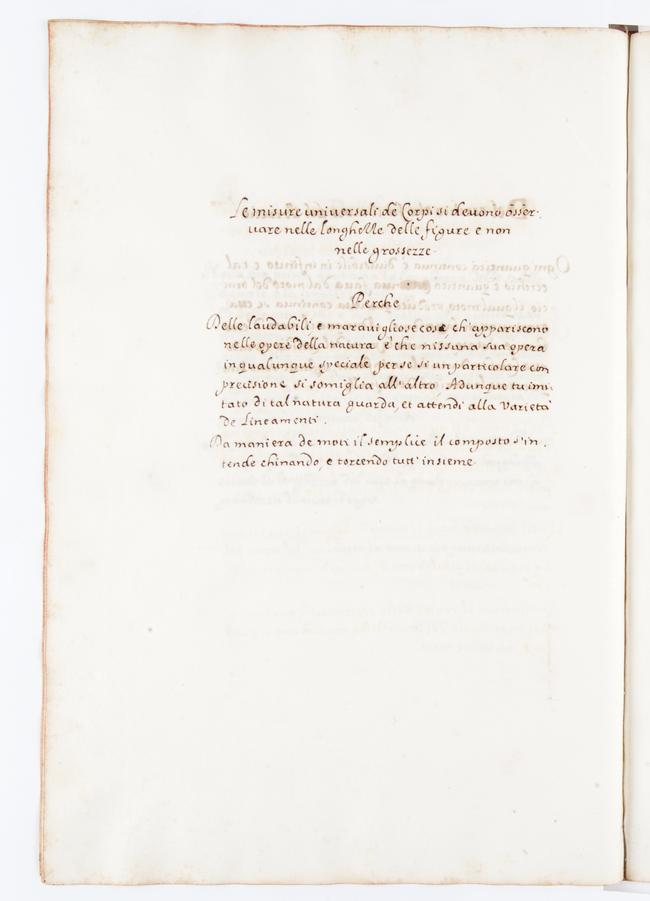 Le misure universali de Corpi si devono osser-
vare nelle longhezze delle figure e non
nelle grossezze.
Perche
Delle laudabili e maravigliose cose, ch'appariscono
nelle opere della natura è che nissuna sua opera
in qualunque speciale per se si un particolare con
precisione si somiglia all'altro, Adunque tu imi-
tato di tal natura guarda, et attendi alla varietà
de Lineamenti.
Da maniera de moti il semplice il composto s'in-
tende chinando, e torcendo tutt' insieme